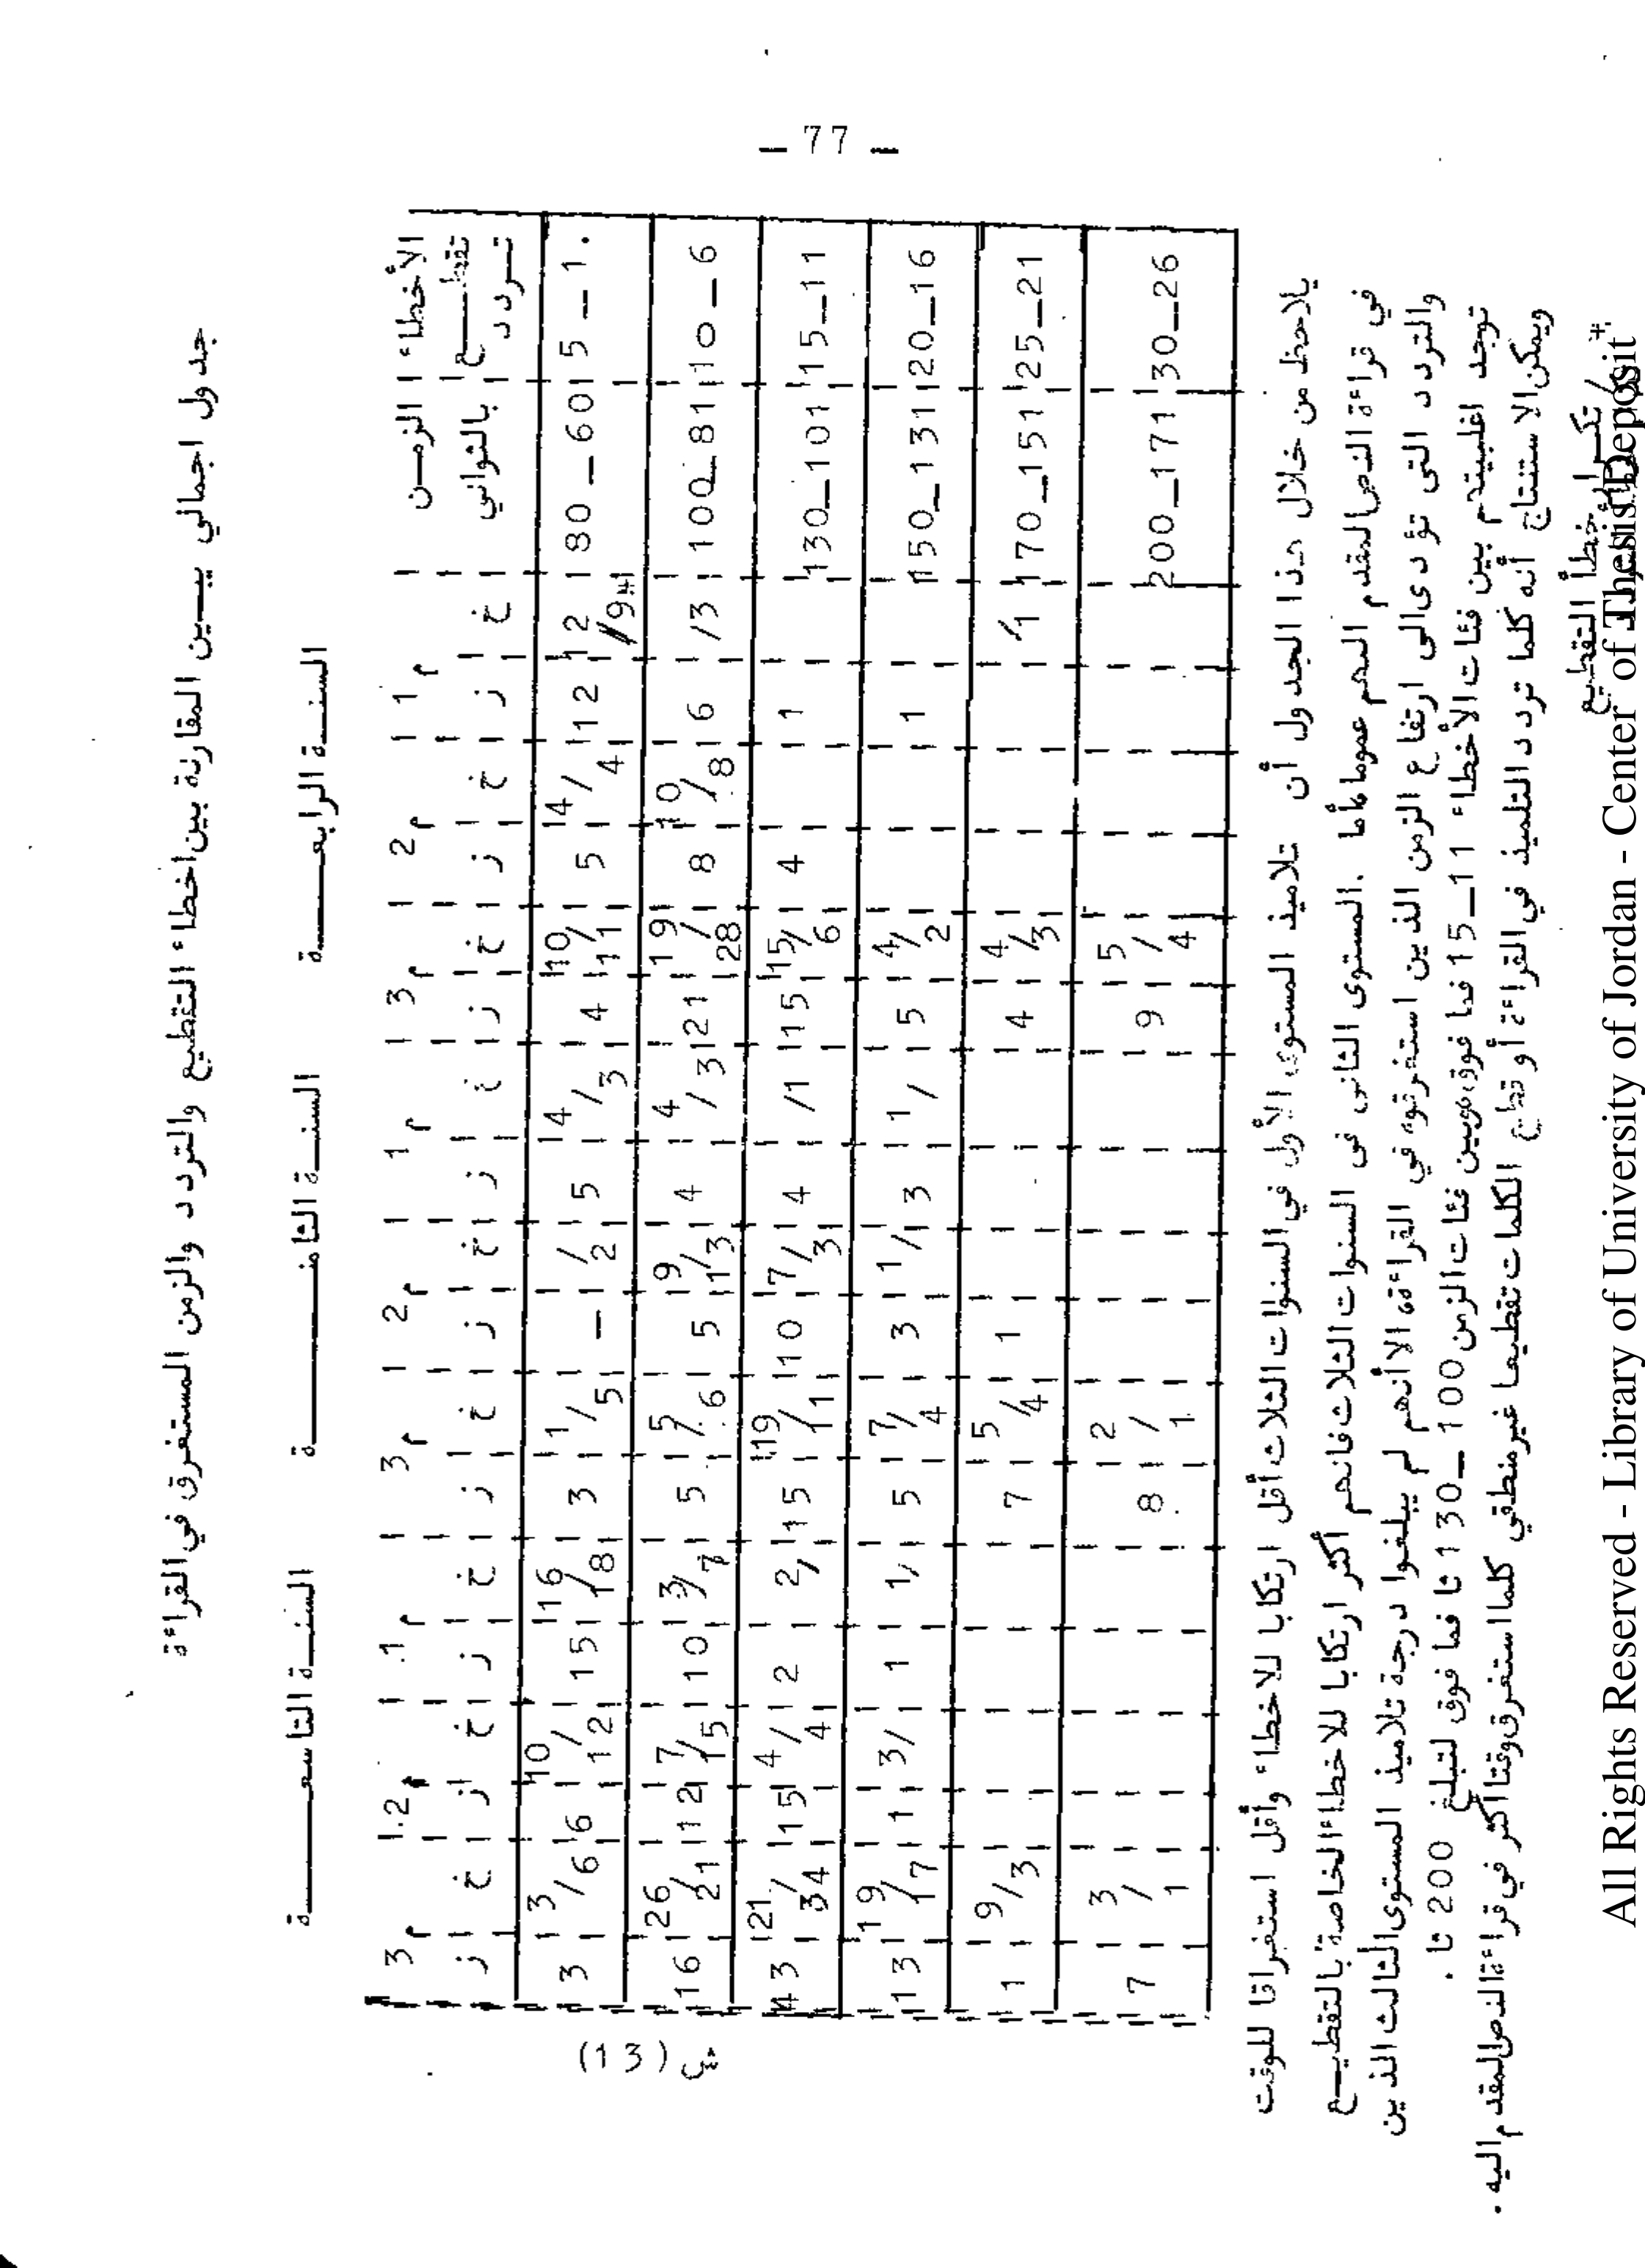 — 77 —
جدول اجمالي يبين المقارنة بين اخطاء التقطيع والتردد والزمن المستغرق في القراءة
السنة الرابعة السنة الثامنة السنة التاسعة
الأخطاء الزمن 1 م 2 م 3 م 1 م 2 م 3 م 1 م 2 م 3 م
تقطع بالثواني خ ز خ ز خ ز خ ز خ ز خ ز خ ز خ ز خ ز
تردد
1 — 5 60 — 80 12/9* 12 4/4 5 10/11 4 4/3 5 /2 — 1/5 3 16/18 15 10/12 6 3/6 3
6 — 10 81 — 100 /3 6 10/8 8 19/28 21 4/3 4 9/13 5 5/6 5 3/7 10 7/15 12 26/21 16
11 — 15 101 — 130 1 4 15/6 15 /1 4 7/3 10 19/11 15 2/ 2 4/4 15 21/34 43
16 — 20 131 — 150 1 4/2 5 1/ 3 1/ 3 7/4 5 1/ 1 3/ 1 19/17 13
21 — 25 151 — 170 /1 4/3 4 1 5/4 7 9/3 1
26 — 30 171 — 200 5/4 9 2/1 8 3/1 7
ش (13)
يلاحظ من خلال هذا الجدول أن تلاميذ المستوى الأول في السنوات الثلاث أقل ارتكابا للاخطاء وأقل استغراقا للوقت
في قراءة النص المقدم اليهم عموما أما . المستوى الثاني في السنوات الثلاث فانهم أكثر ارتكابا للاخطاء الخاصة بالتقطيع
والتردد التي تؤدى الى ارتفاع الزمن الذين استغرقوه في القراءة الا أنهم لم يبلغوا درجة تلاميذ المستوى الثالث الذين
توجد اغلبيتهم بين فئات الأخطاء 11 — 15 فما فوق وبين فئات الزمن 100 — 130 ثا فما فوق لتبلغ 200 ثا .
ويمكن الاستنتاج أنه كلما تردد التلميذ في القراءة أو قطع الكلمات تقطيعا غير منطقي كلما استغرق وقتا أكثر في قراءة النص المقدم اليه .
* تكرار خطأ التقطيع
All Rights Reserved - Library of University of Jordan - Center of Thesis Deposit